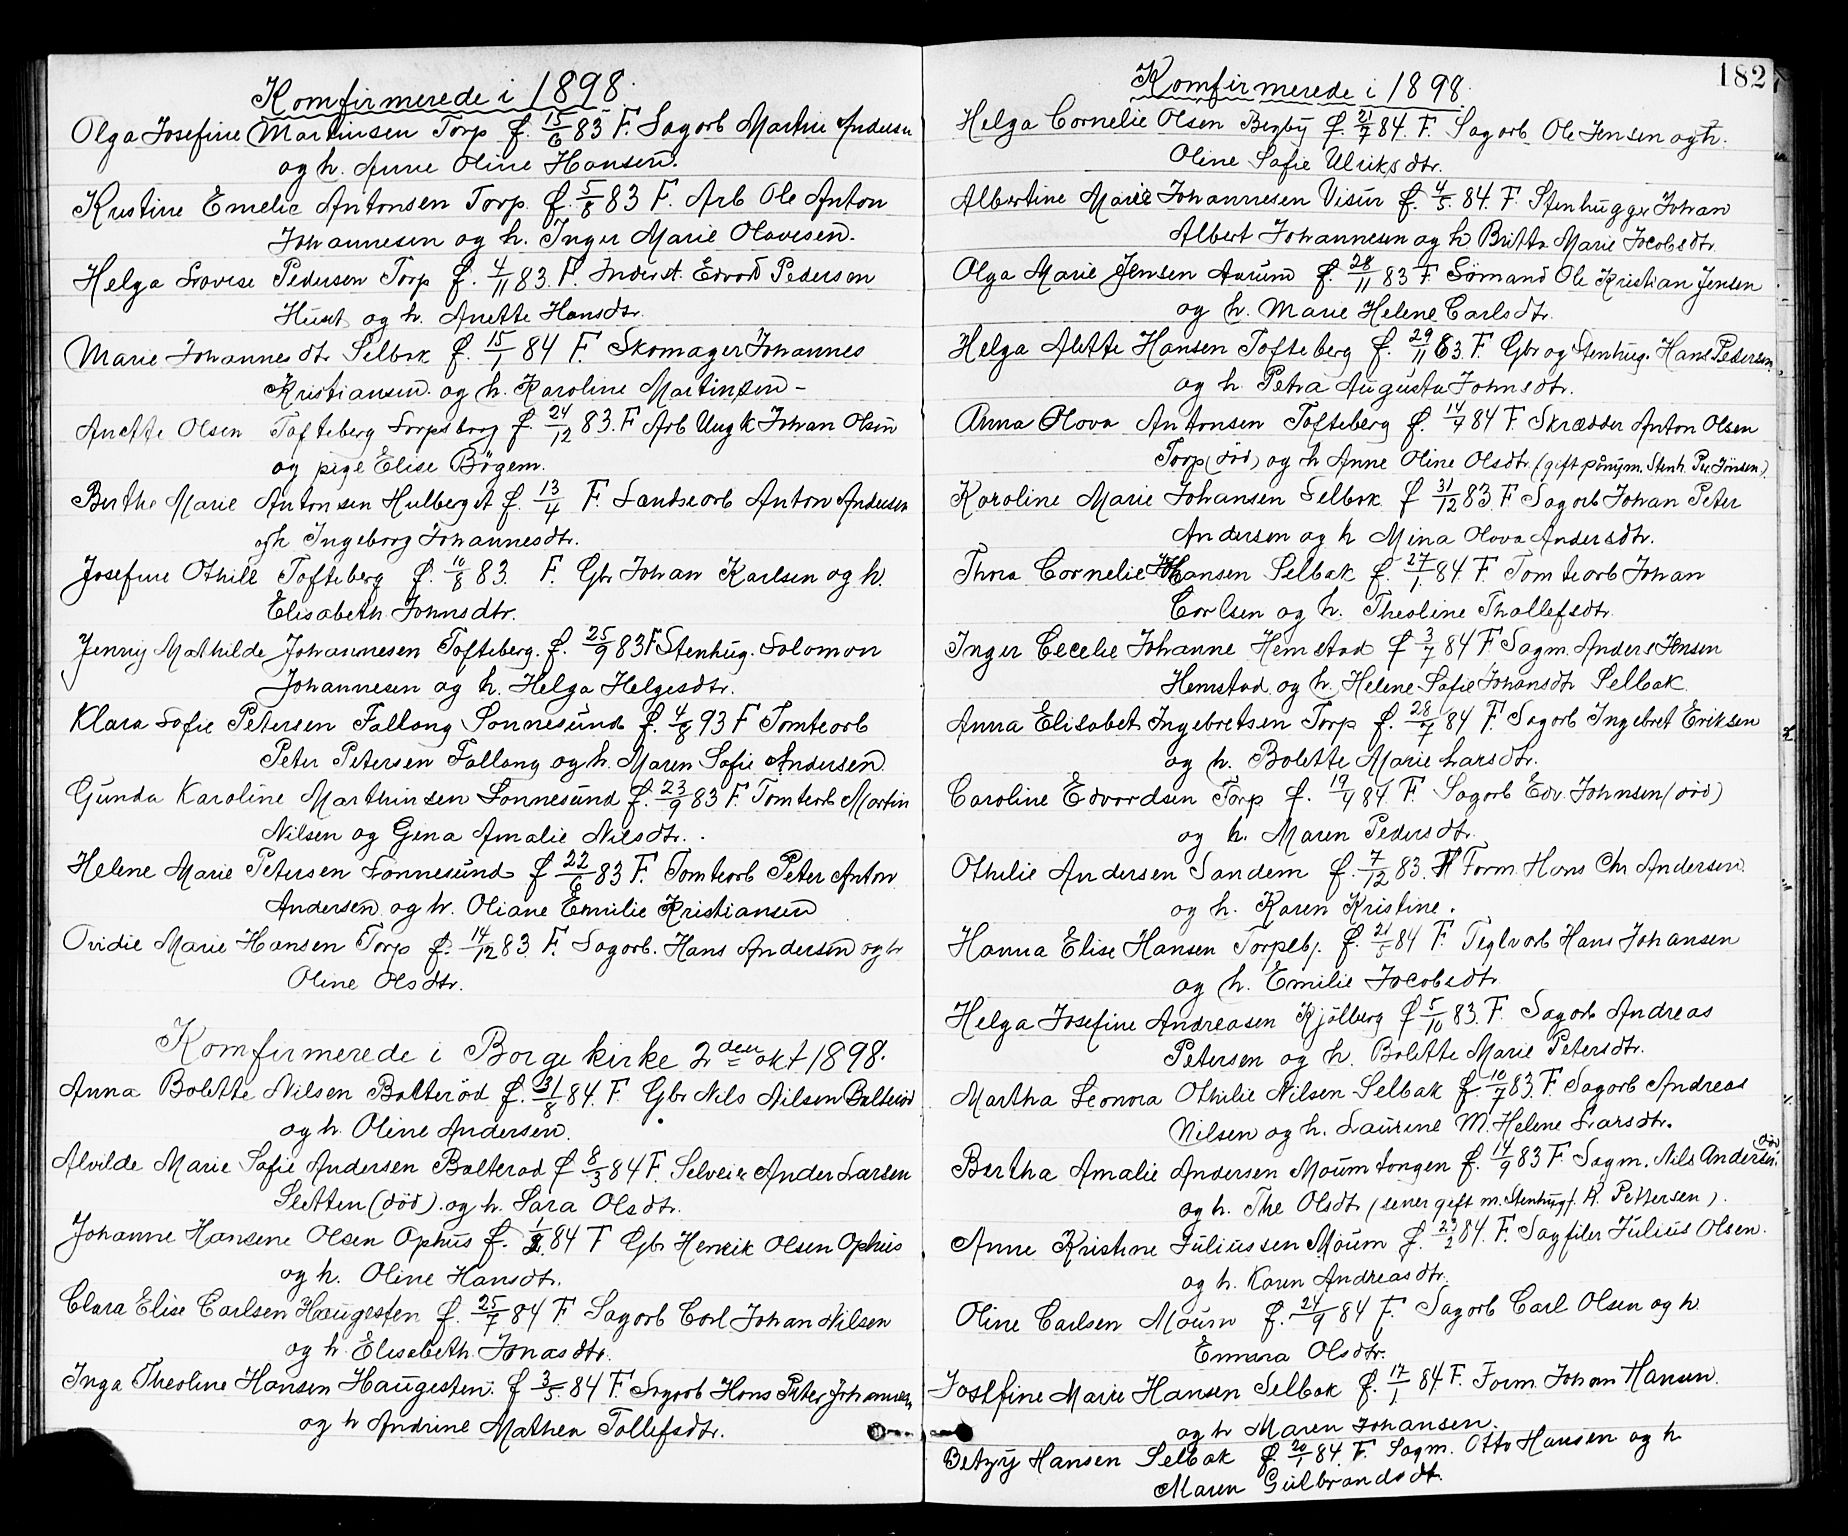 Komfirmerede i 1898.
Olga Josefine Martinsen Torp f. 15/6 83 F. Sagarb Martin Andersen
og h. Anne Oline Hansen.
Kristine Emelie Antonsen Torp. f. 5/8 83 F. Arb Ole Anton
Johannesen og h. Inger Marie Olavesen.
Helga Lovise Pedersen Torp f. 4/11 83. F. Inderst. Edvard Pedersen
og h. Anette Hansdtr.
Marie Johannesdtr Selbak f. 15/1 84 F. Skomager Johannes
Kristiansen. og h. Karoline Martinsen -
Anette Olsen Tofteberg Sarpsborg f. 24/12 83. F Arb Ungk Johan Olsen
og pige Elise Bøgem.
Berthe Marie Antonsen Hulberget f. 13/4 F. Landsearb Anton Andersen
og h Ingeborg Johannesdtr.
Josefine Othile Tofteberg f. 10/8 83. F. Gbr Johan Karlsen og h.
Elisabeth Johnsdtr.
Jenny Mathilde Johannesen Tofteberg. f. 25/9 83 F Stenhug. Solomon
Johannesen og h. Helga Helgesdtr.
Klara Sofie Petersen Fallang Sonnesund f. 4/8 93 F Tomtearb
Peter Petersen Fallang og h. Maren Sofie Andersen
Gunda Karoline Marthinsen Sonnesund f. 23/9 83 F. Tomtearb Martin
Nilsen og Gina Amalie Nilsdtr.
Helene Marie Petersen Sonnesund f 22/6 83 F. Tomtearb Peter Anton
Andersen og h. Oliane Emilie Kristiansen
Ovidie Marie Hansen Torp f. 14/12 83 F. Sagarb. Hans Andersen og h
Oline Olsdtr.
Komfirmerede i Borge kirke 2den okt 1898.
Anna Bolette Nilsen Bolterød f. 31/8 84. F. Gbr Nils Nilsen Bolterød
og h. Oline Andersen.
Alvilde Marie Sofie Andersen Bolterød f 8/3 84 F. Selveier Ander Larsen
Sletten (død). og h. Sara Olsdtr.
Johanne Hansene Olsen Ophus f. 84 F Gbr Henrik Olsen Ophus
og h. Oline Hansdtr.
Clara Elise Carlsen Haugesten f. 25/7 84 F. Sagarb Carl Johan Nilsen
og h. Elisabeth Jonasdtr.
Inga Theoline Hansen Haugesten. f 3/5 84 F. Sagarb Hans Peter Johannesen
og h Andrine Mathea Tollefsdtr.
182
Komfirmerede i 1898.
Helga Cornelie Olsen Begby f. 21/7 84. F. Sagarb Ole Jensen og h.
Oline Sofie Ulriksdtr.
Albertine Marie Johannesen Visur f. 4/5. 84. F. Stenhugger Johan
Albert Johannesen og h Britta Marie Jacobsdtr.
Olga Marie Jensen Aarum f. 28/11 83 F. Sømand Ole Kristian Jensen
og h. Marie Helene Carlsdtr.
Helga Alette Hansen Tofteberg f. 29/11 83. F. Gbr og Stenhug. Hans Pedersen
og h. Petra Augusta Johnsdtr.
Anna Olova Antonsen Tofteberg f. 14/4 84 F. Skrædder Anton Olsen
Torp (død) og h Anne Oline Olsdtr. (gift pånym. Stenh. Per Jonsen.)
Karoline Marie Johansen Selbak f 31/12 83. F Sagarb Johan Peter
Andersen og h Mina Olova Andersdtr.
Thora Cornelie Johansen Selbak f. 27/1 84 F. Tomtearb Johan
Carlsen og h. Theoline Thollefsdtr.
Inger Cecelie Johanne Hemstad f 3/7 84 F. Sagm. Anders Jensen
Hemstad og h. Helene Sofie Johansdtr Selbak
Anna Elisabet Ingebretsen Torp f. 28/7 84 F. Sagarb Ingebret Eriksen
og h. Bolette Marie Larsdtr.
Caroline Edvardsen Torp f. 19/4 84. F. Sagarb Edv. Johnsen (død)
og h. Maren Pedersdtr.
Othilie Andersen Sandem f. 7/12 83. F Form. Hans Chr Andersen.
og h. Karen Kristine.
Hanna Elise Hansen Torpebj. f. 21/5 84 F. Teglvarb Hans Johansen
og h. Emilie Jacobsdtr.
Helga Josefine Andreasen Kjølberg f 5/10 83. F. Sagarb Andreas
Petersen og h. Bolette Marie Petersdtr.
Martha Leonora Othilie Nilsen Selbak f. 10/7 83. F. Sagarb Andreas
Nilsen og h. Laurine M. Helene Larsdtr.
Bertha Amalie Andersen Moumtangen f. 14/9 83 F. Sagm. Nils Andersen. (død)
og h. The Olsdtr (sener gift m. Stenhugf. A. Pettersen).
Anne Kristine Juliussen Moum f. 23/2 84. F. Sagfiler Julius Olsen.
og h. Karen Andreasdtr.
Oline Carlsen Moum f. 24/9 84 F. Sagarb Carl Olsen og h.
Emma Olsdtr.
Josefine Marie Hansen Selbak f. 17/1 84 F. Form. Johan Hansen.
og h Maren Johansen.
Betzy Hansen Selbak f. 20/1 84. F. Sagm. Otto Hansen og h
Maren Gulbrandsdt.